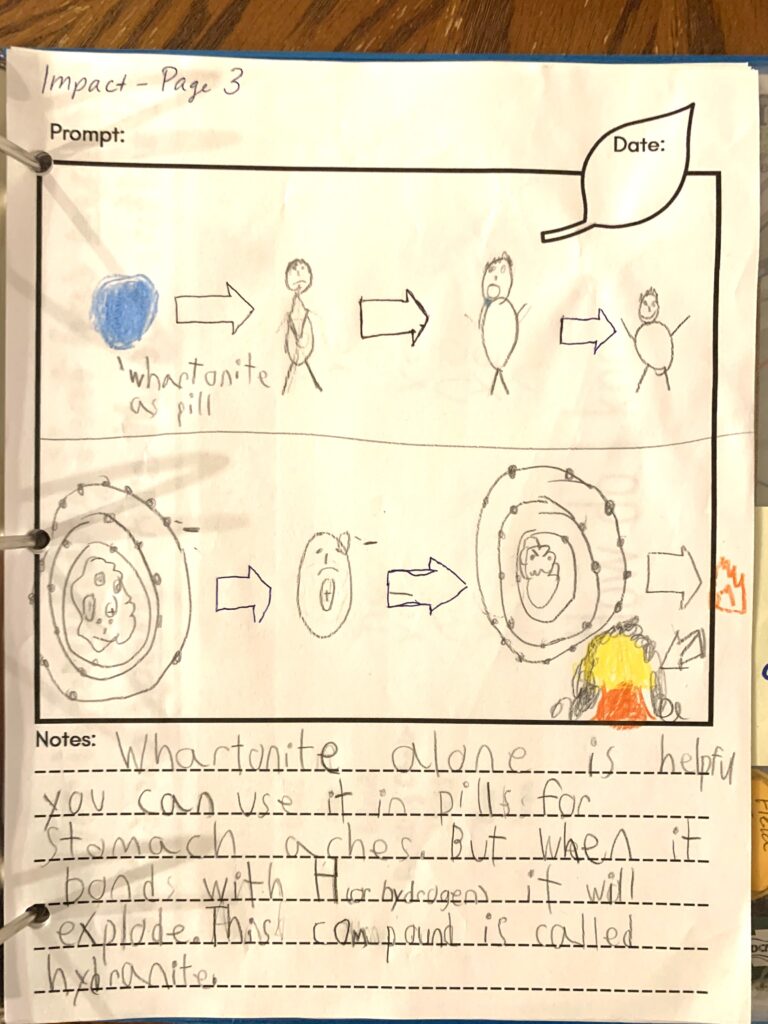 Impact - Page 3
Prompt:
Date:
whartonite
as pill
Notes: Whartonite alone is helpful
you can use it in pills for
stomach aches. But when it
bonds with H (or hydrogen) it will
explode. This compound is called
hydranite.